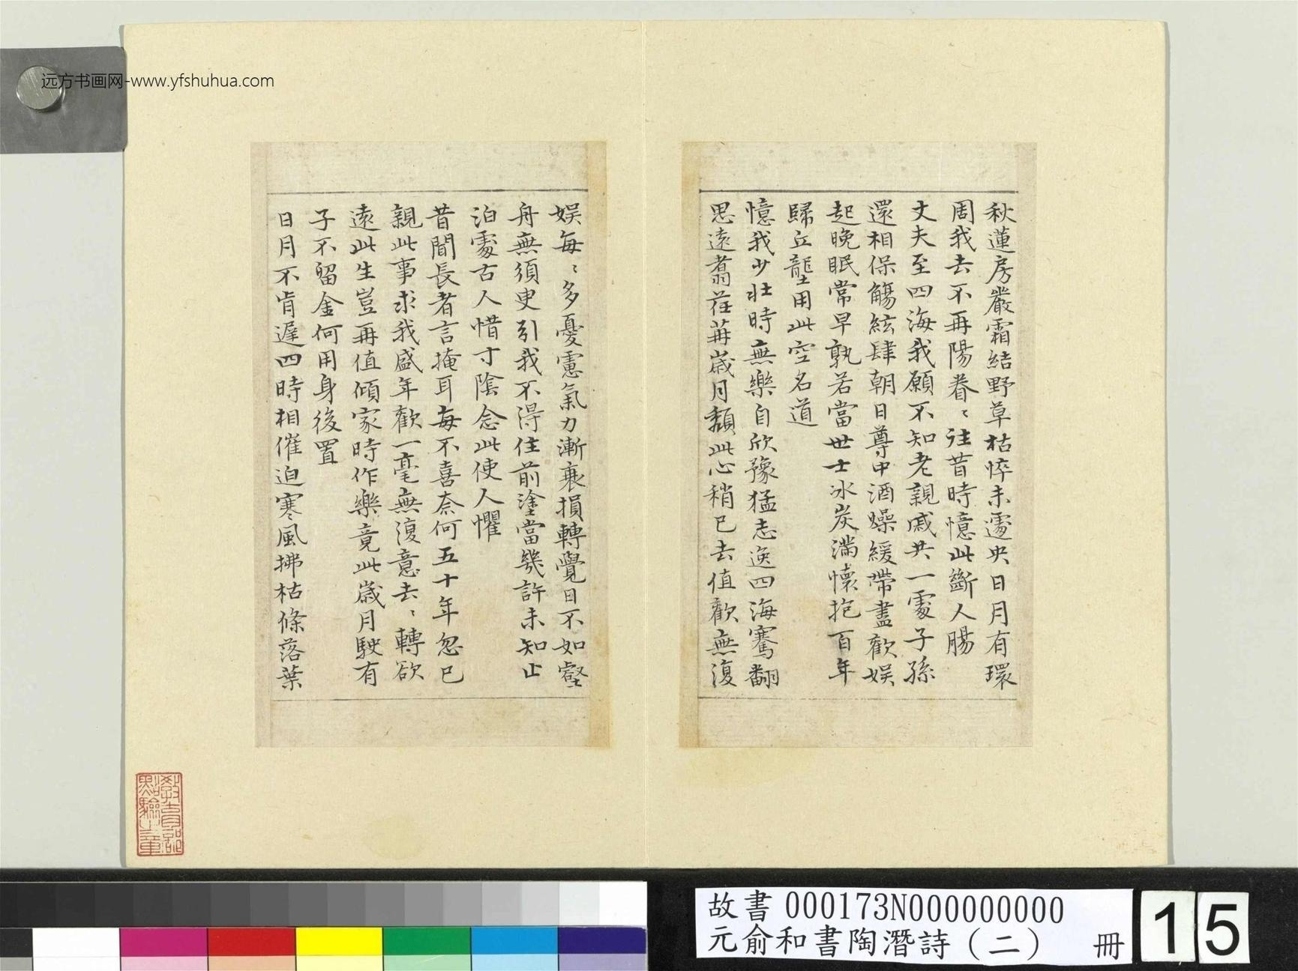 远方书画网-www.yfshuhua.com
秋蓮房嚴霜結野草枯悴未遽央日月有環
周我去不再陽眷〻往昔時憶此斷人腸
丈夫至四海我願不知老親戚共一處子孫
還相保觴絃肆朝日尊中酒燥緩帶盡歡娛
起晚眠常早孰若當世士冰炭滿懷抱百年
歸丘壟用此空名道
憶我少壯時無樂自欣豫猛志逸四海騫翮
思遠翥荏苒歲月頽此心稍已去值歡無復
娛每〻多憂慮氣力漸衰損轉覺日不如壑
舟無須臾引我不得住前塗當幾許未知止
泊處古人惜寸陰念此使人懼
昔聞長者言掩耳每不喜奈何五十年忽已
親此事求我盛年歡一毫無復意去〻轉欲
遠此生豈再值傾家時作樂竟此歲月駛有
子不留金何用身後置
日月不肯遲四時相催迫寒風拂枯條落葉
故書 000173N000000000
元俞和書陶潛詩（二） 冊
15